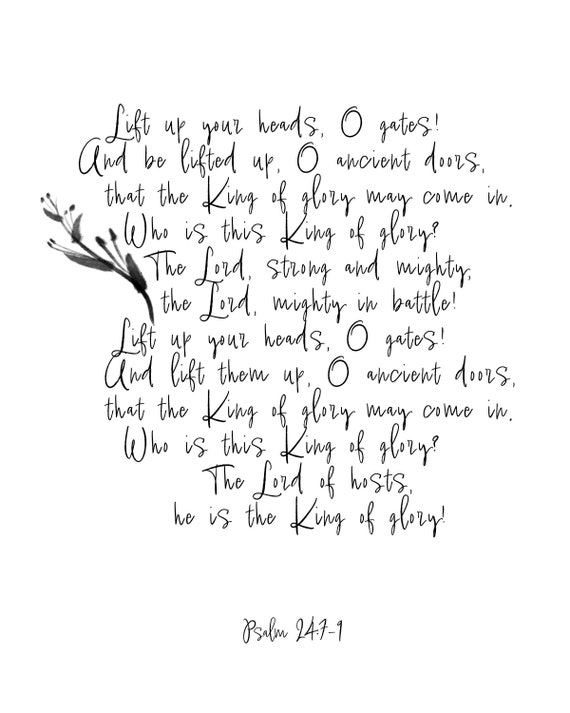 Lift up your heads, O gates!
And be lifted up, O ancient doors,
that the King of glory may come in.
Who is this King of glory?
The Lord, strong and mighty,
the Lord, mighty in battle!
Lift up your heads, O gates!
And lift them up, O ancient doors,
that the King of glory may come in.
Who is this King of glory?
The Lord of hosts,
he is the King of glory!
Psalm 24:7-9